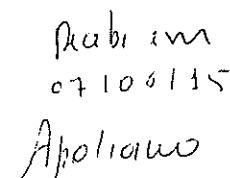 Recebi em
07/08/15
Apoliano